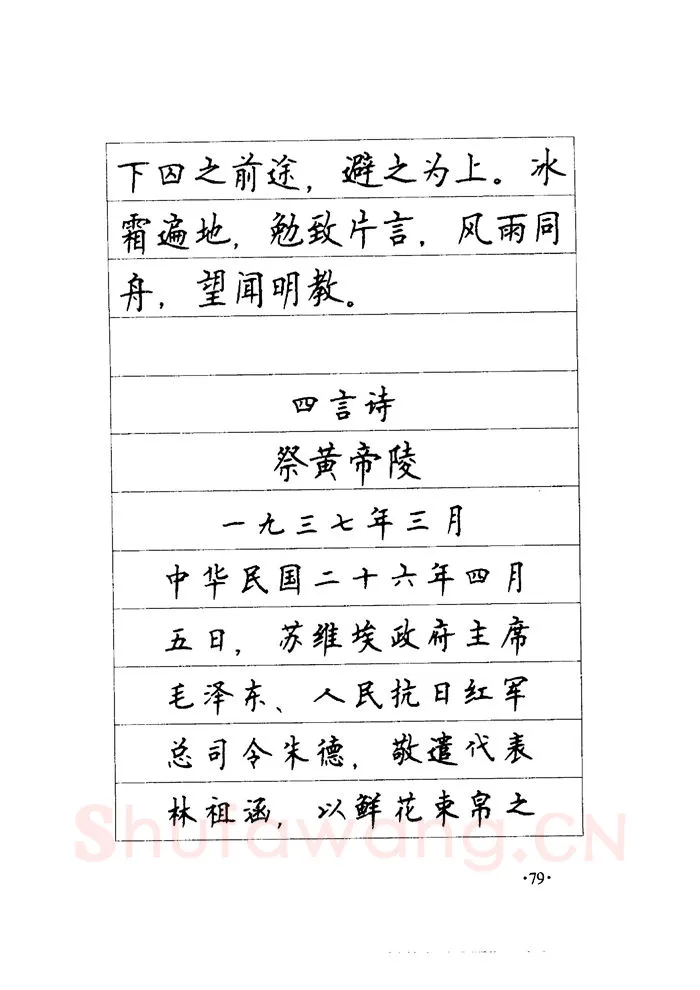 下囚之前途，避之为上。冰
霜遍地，勉致片言，风雨同
舟，望闻明教。
四言诗
祭黄帝陵
一九三七年三月
中华民国二十六年四月
五日，苏维埃政府主席
毛泽东、人民抗日红军
总司令朱德，敬遣代表
林祖涵，以鲜花束帛之
Shufawang.CN
·79·